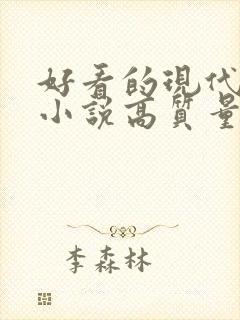 好看的现代
小说高质量
李森林